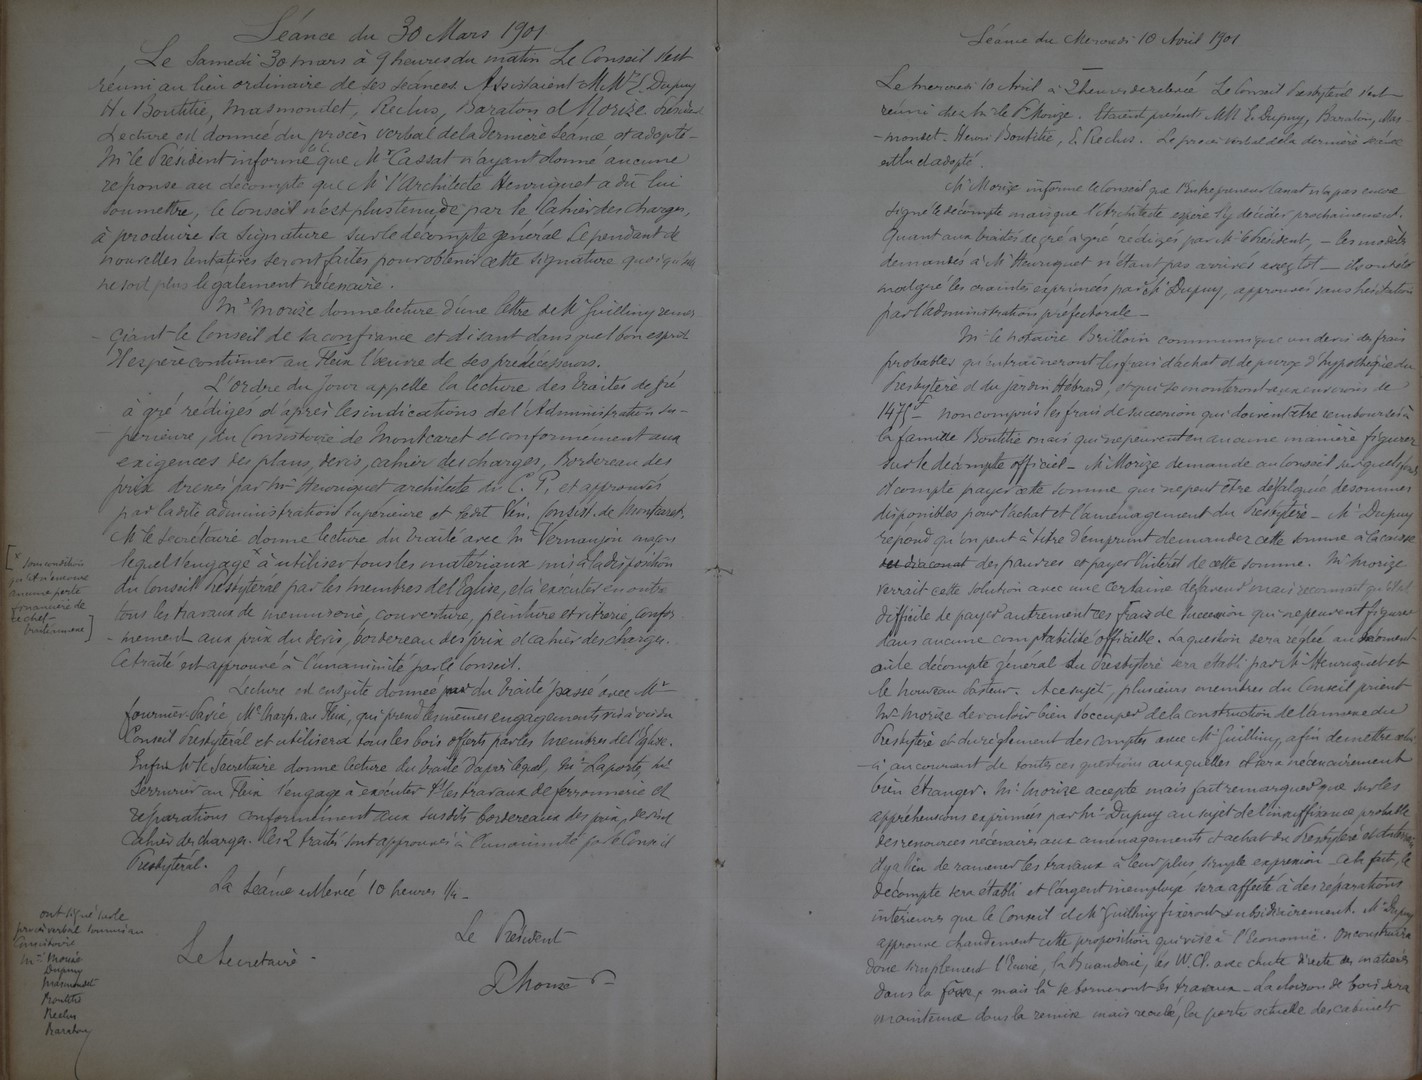 Séance du 30 Mars 1901
Le Samedi 30 mars à 9 heures du matin Le Conseil s'est
réuni au lieu ordinaire de ses séances. Assistaient M.Mrs L. Dupuy
H. Boutitié, Masmondet, Reclus, Baraton et Morize Président
Lecture est donnée du procès verbal de la dernière séance et adopté -
Mr le Président informe que Mr Cassat n'ayant donné aucune
réponse au décompte que Mr l'Architecte Henriquet a dû lui
soumettre, le Conseil n'est plus tenu, de par le Cahier des charges,
à produire sa signature sur le décompte général. Cependant de
nouvelles tentatives seront faites pour obtenir cette signature quoiqu'elle
ne soit plus légalement nécessaire.
Mr Morize donne lecture d'une lettre de Mr Guilliny remer-
-ciant le Conseil de sa confiance et disant dans quel bon esprit
il espère continuer au Fleix l'œuvre de ses prédécesseurs.
L'ordre du jour appelle la lecture des traités de gré
à gré rédigés d'après les indications de l'Administration su-
-périeure, du Consistoire de Montcaret et conformément aux
exigences des plans, devis, cahier des charges, Bordereau des
prix dressés par Mr Henriquet architecte du C. P. et approuvés
par la dite administration supérieure et Consist. de Montcaret.
Mr le Secrétaire donne lecture du traité avec Mr Vernanjon maçon
lequel s'engage x à utiliser tous les matériaux mis à la disposition
du Conseil Presbytéral par les membres de l'Eglise, et à exécuter en outre
tous les travaux de menuiserie, couverture, peinture et vitrerie, confor-
-mément aux prix du devis, bordereau des prix et cahier des charges.
Ce traité est approuvé à l'unanimité par le Conseil.
[x sous condition
qu'il n'éprouve
aucune perte
financière de
ce chef
]
Lecture est ensuite donnée du traité passé avec Mr
Fournier, Me Charp. au Fleix, qui prend les mêmes engagements vis à vis du
Conseil Presbytéral et utilisera tous les bois offerts par les membres de l'Eglise.
Enfin Mr le Secrétaire donne lecture du traité d'après lequel, Mr Laporte,
Serrurier au Fleix s'engage à exécuter ts les travaux de ferronnerie et
réparations conformément aux susdits bordereaux des prix, devis et
Cahier des charges. Ces 2 traités sont approuvés à l'unanimité par le Conseil
Presbytéral.
La Séance est levée 10 heures 1/4 -
Le Président
Le Secrétaire -
P Morize
ont signé sur le
procès verbal soumis au
Consistoire
Mrs Morize
Dupuy
Masmondet
Boutitié
Reclus
Baraton
Séance du Mercredi 10 Avril 1901
Le mercredi 10 Avril à 2 heures de relevée Le Conseil Presbytéral s'est
réuni chez Mr le P. Morize. Etaient présents MM. L. Dupuy, Baraton, Mas-
-mondet. Henri Boutitié, E. Reclus. Le procès verbal de la dernière séance
est lu et adopté.
Mr Morize informe le Conseil que l'Entrepreneur Cassat n'a pas encore
signé le décompte mais que l'Architecte espère l'y décider prochainement.
Quant aux traités de gré à gré rédigés par Mr le Président, - les modèles
demandés à Mr Henriquet n'étant pas arrivés assez tôt - ils ont été
malgré les craintes exprimées par Mr Dupuy, approuvés sans hésitation
par l'administration préfectorale -
Mr le notaire Brilloin communique un devis des frais
probables qu'entraîneront les frais d'achat et de purge d'hypothèque du
Presbytère et du jardin Hébrard, et qui se monteront aux environs de
1475 f non compris les frais de succession qui doivent être remboursés à
la famille Boutitié mais qui ne peuvent en aucune manière figurer
sur le décompte officiel - Mr Morize demande au Conseil sur quels fonds
il compte payer cette somme qui ne peut être défalquée des sommes
disponibles pour l'achat et l'aménagement du Presbytère - Mr Dupuy
répond qu'on peut à titre d'emprunt demander cette somme à la caisse
du diaconat des pauvres et payer l'intérêt de cette somme. Mr Morize
verrait cette solution avec une certaine défaveur mais reconnaît qu'il est
difficile de payer autrement ces frais de succession qui ne peuvent figurer
dans aucune comptabilité officielle. La question sera réglée au moment
où le décompte général du Presbytère sera établi par Mr Henriquet et
le nouveau Pasteur. A ce sujet, plusieurs membres du Conseil prient
Mr Morize de vouloir bien s'occuper de la construction de l'annexe du
Presbytère et du règlement des comptes avec Mr Guilliny, afin de mettre celui-
-ci au courant de toutes ces questions auxquelles il sera nécessairement
bien étranger. Mr Morize accepte mais fait remarquer que sur les
appréhensions exprimées par Mr Dupuy au sujet de l'insuffisance probable
des ressources nécessaires aux aménagements et achat du Presbytère
il y a lieu de ramener les travaux à leur plus simple expression. Cela fait, le
décompte sera établi et l'argent inemployé sera affecté à des réparations
intérieures que le Conseil et Mr Guilliny fixeront subsidiairement. Mr Dupuy
approuve chaudement cette proposition qui vise à l'Economie. On construira
donc simplement l'Ecurie, la Buanderie, les W.C. avec chute directe des matières
dans la fosse, mais là se borneront les travaux - La cloison de bois sera
maintenue dans la remise mais reculée, la porte actuelle des cabinets